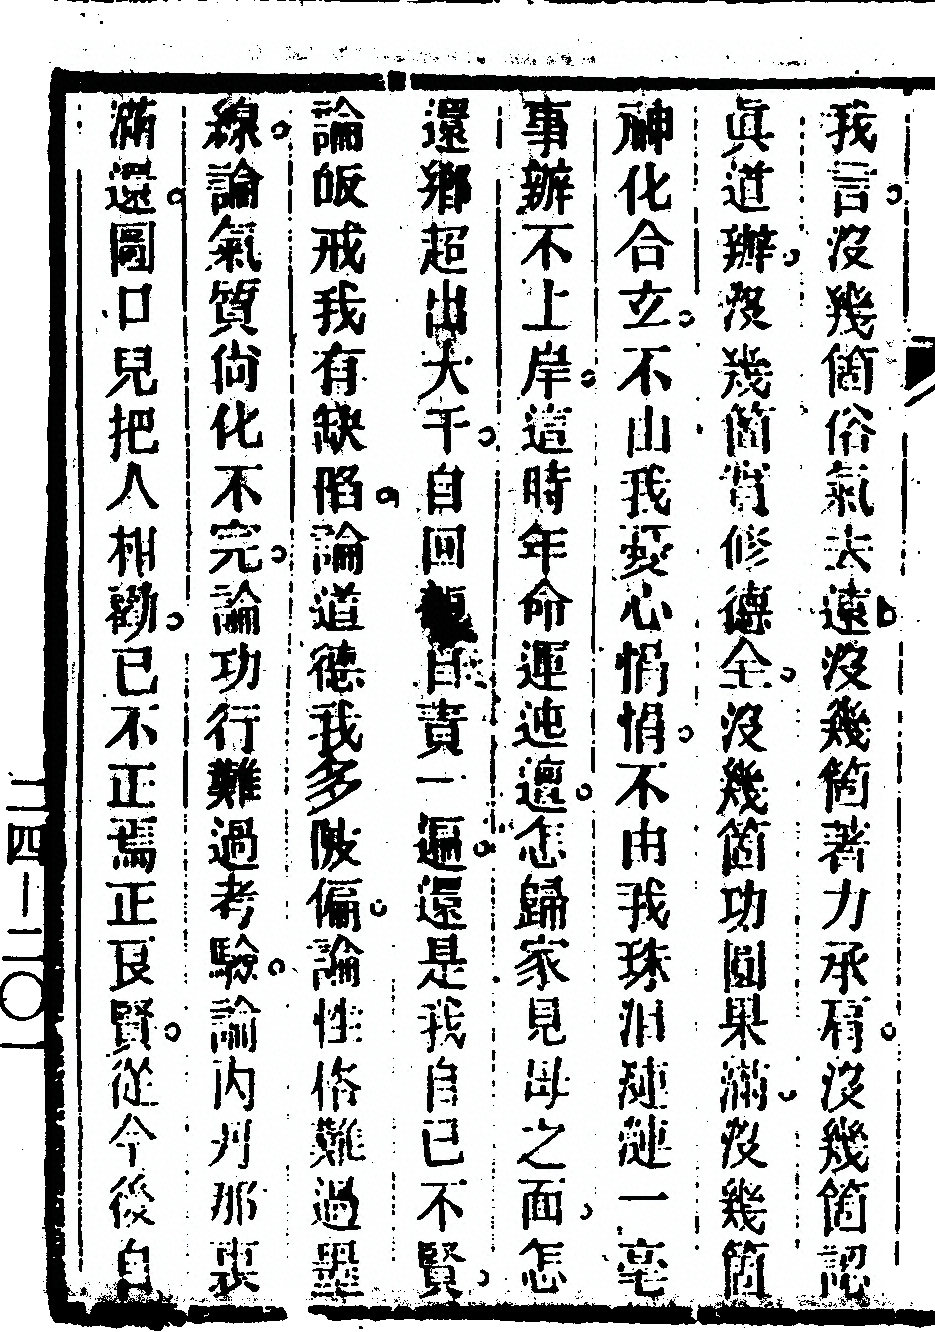 我言沒幾箇俗氣去遠沒幾箇著力承肩沒幾箇認
眞道辦沒幾箇實修德全沒幾箇功圓果滿沒幾箇
神化合立不由我憂心悁悁不由我珠泪漣漣一毫
事辦不上岸這時年命運迍邅怎歸家見母之面怎
還鄉超出大千自回自責一遍還是我自己不賢
論皈戒我有缺陷論道德我多陂偏論性俗難過墨
線論氣質尙化不完論功行難過考驗論內丹那裏
滿還圖口兒把人相勸已不正焉正良賢從今後自
二四-二〇一